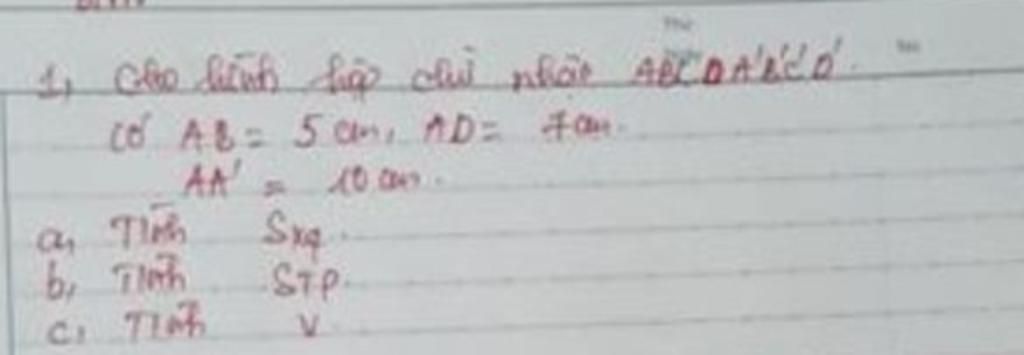 1, Cho hình hộp chữ nhật ABCD A'B'C'D'.
có AB = 5 cm, AD = 7 cm.
AA' = 10 cm.
a, Tính Sxq.
b, Tính STP.
c, Tính V